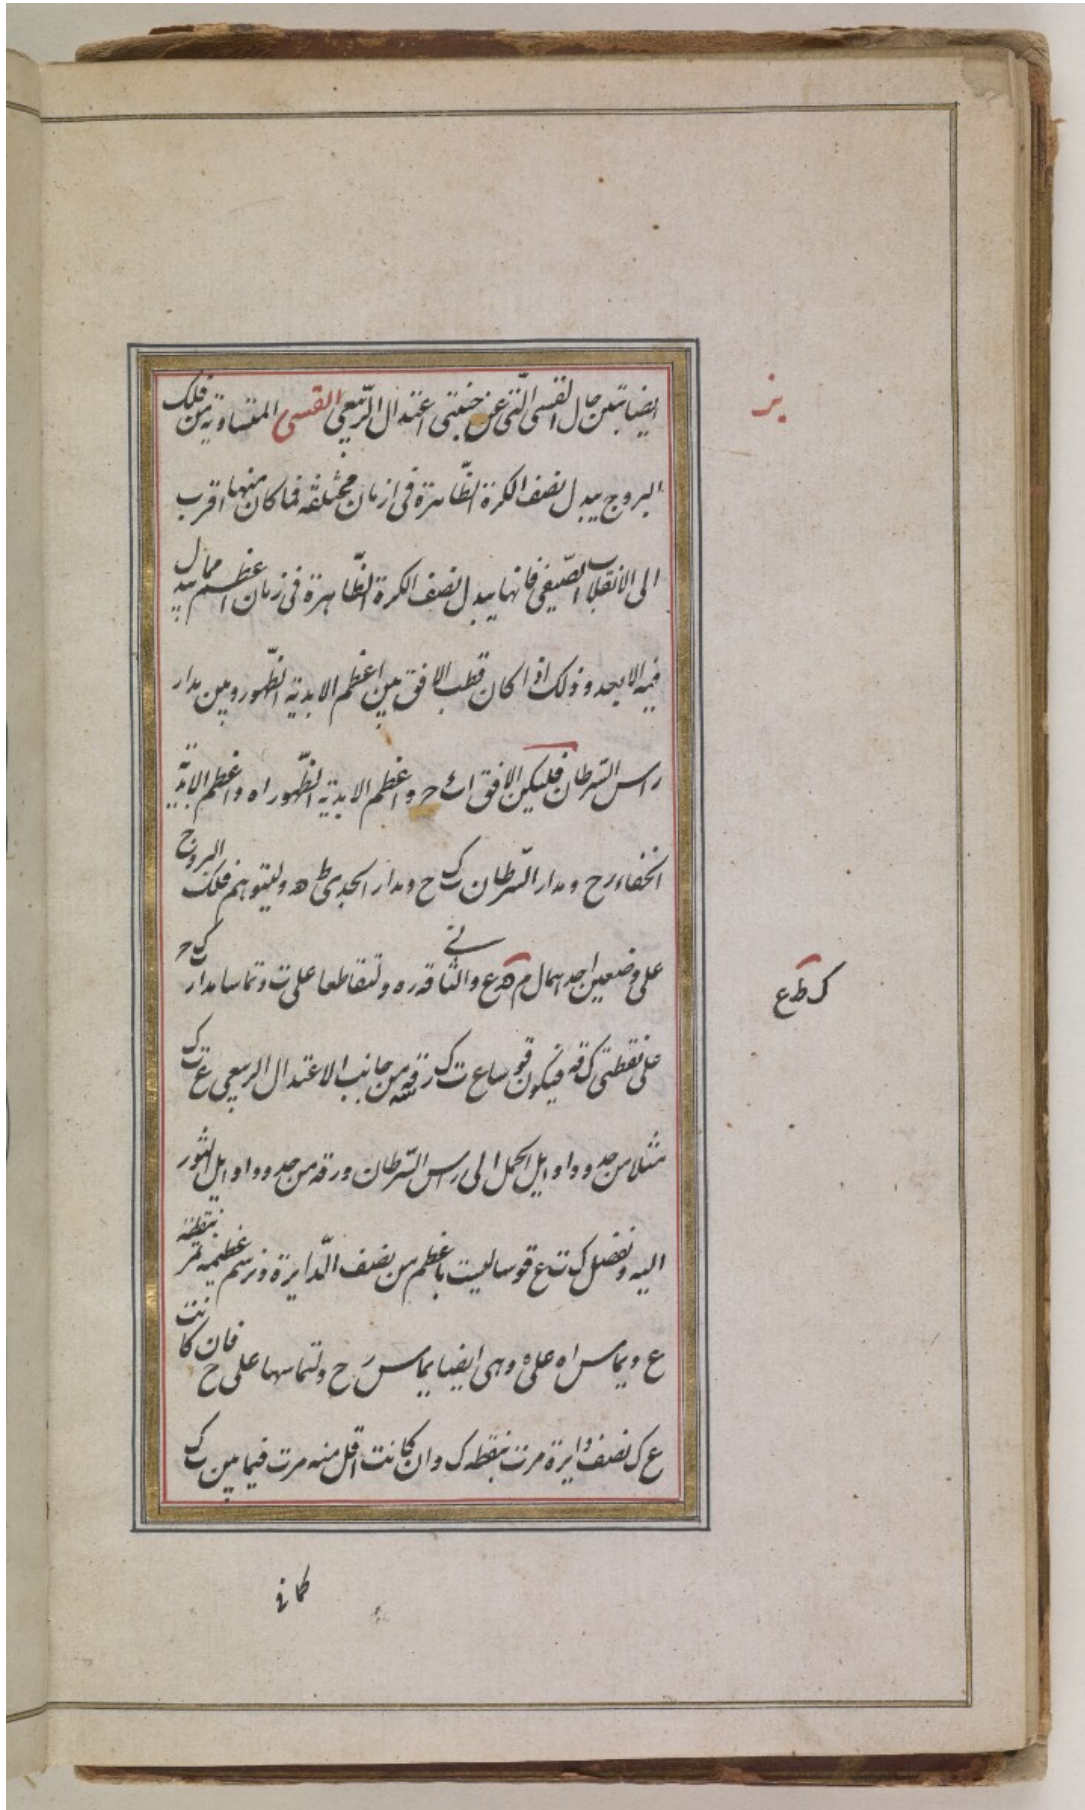 ايضا تبين حال القسى التى عن جنبتى اعتدال الربيعى القسى المتساوية من فلك
يز
البروج يبدل نصف الكرة الظاهرة فى ازمان مختلفة فما كان منها اقرب
الى الانقلاب الصيفى فانها يبدل نصف الكرة الظاهرة فى زمان اعظم مما يبدل
فيه الابعد وذلك اذا كان قطب الافق بين اعظم الابدية الظهور وبين مدار
راس السرطان فليكن الافق ا ح واعظم الابدية الظهور اه واعظم الابدية
الخفاء رح ومدار السرطان ك ح ومدار الجدى ط ه وليتوهم فلك البروج
على وضعين احدهما ل م ع والثانى قه ره وليتقاطعا على ت وتماسا مدار ك ح
ك ط ع
على نقطتى ك قه فيكون قوسا ع ت ك ر قه من جانب الاعتدال الربيعى ع ت ك
مثلا من حدود اوايل الحمل الى راس السرطان و ر قه من حدود اوايل الثور
اليه ونفصل ك ت ع قوسا ليست باعظم من نصف الدايرة ونرسم عظيمة تمر بنقطة
ع ويماس اه على ه وهى ايضا يماس رح ولتماسها على ح فان كانت
ع ك نصف دايرة مرت بنقطه ك وان كانت اقل منه مرت فيما بين ك